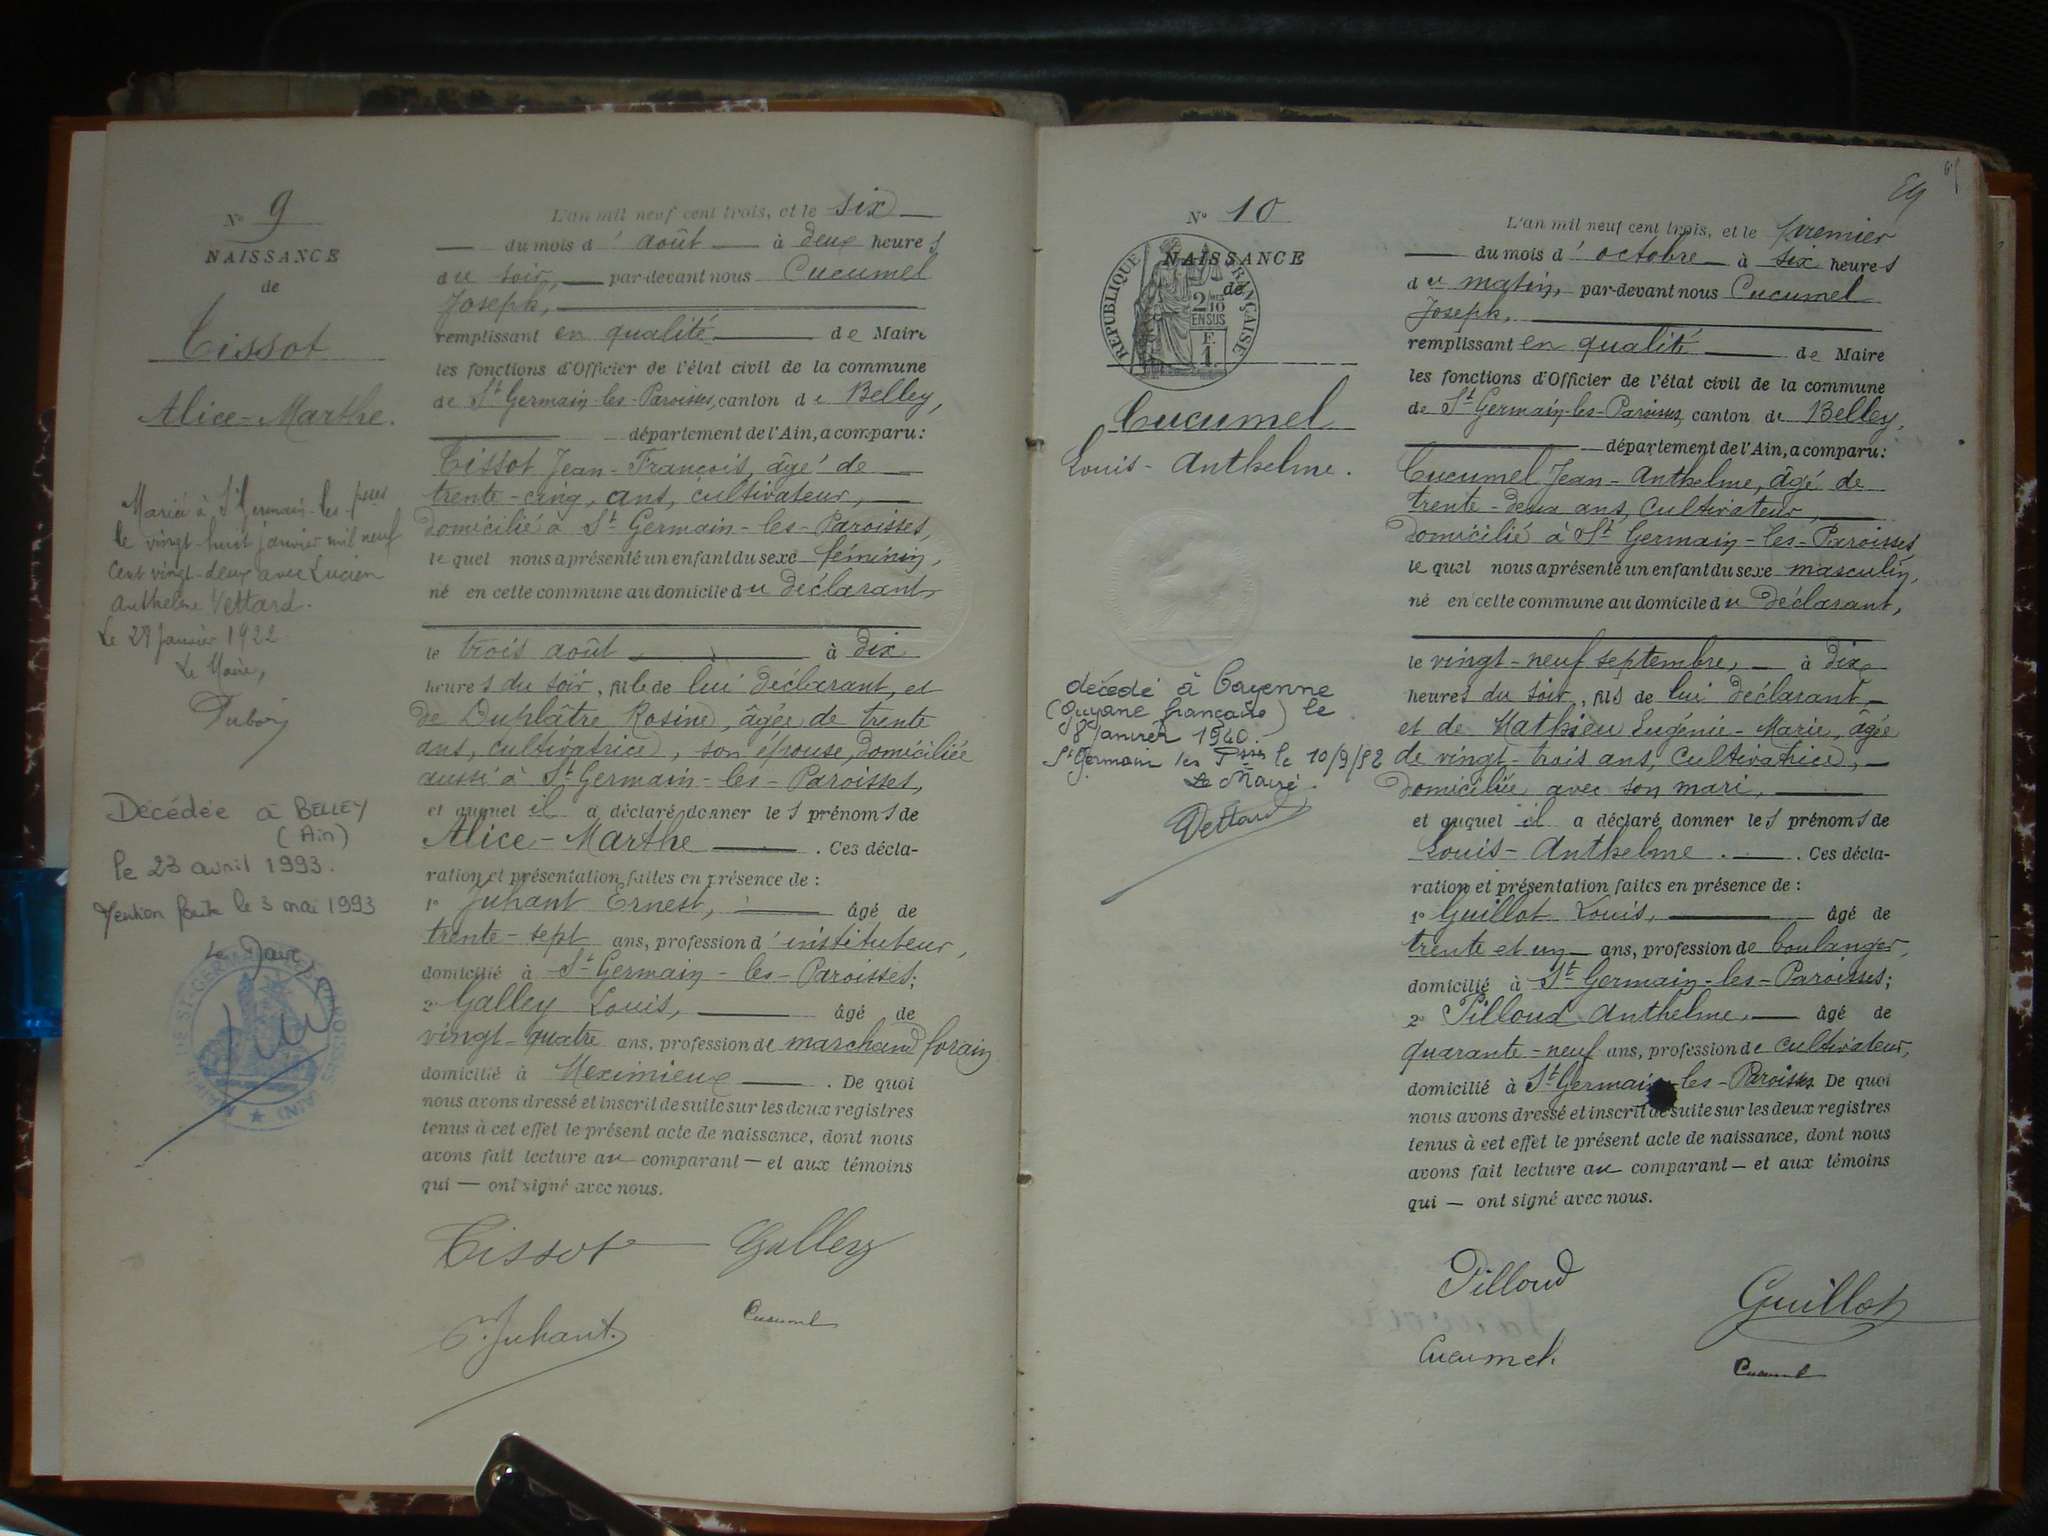 N° 9
NAISSANCE
de
Tissot
Alice-Marthe.
Marié à St Germain-les-pses
le vingt huit janvier mil neuf
cent vingt-deux avec Lucien
Anthelme Vettard.
Le 29 Janvier 1922
Le Maire,
Décédée à BELLEY
(Ain)
le 23 avril 1993.
Mention faite le 3 mai 1993
Le Maire
L'an mil neuf cent trois, et le six
du mois d'août à deux heures
du soir, par-devant nous Cucumel
Joseph,
remplissant en qualité de Maire
les fonctions d'Officier de l'état civil de la commune
de St Germain-les-Paroisses, canton de Belley,
département de l'Ain, a comparu:
Tissot Jean-François, âgé de
trente-cinq, ans, cultivateur,
domicilié à St Germain-les-Paroisses,
lequel nous a présenté un enfant du sexe féminin,
né en cette commune au domicile du déclarant,
le trois août à dix
heures du soir, fille de lui déclarant, et
de Duplâtre Rosine, âgée de trente
ans, cultivatrice, son épouse, domiciliée
aussi à St Germain-les-Paroisses,
et auquel il a déclaré donner les prénoms de
Alice-Marthe. Ces décla-
ration et présentation faites en présence de :
1° Juhant Ernest, âgé de
trente-sept ans, profession d'instituteur,
domicilié à St Germain-les-Paroisses;
2° Galley Louis, âgé de
vingt-quatre ans, profession de marchand forain
domicilié à Meximieux. De quoi
nous avons dressé et inscrit de suite sur les deux registres
tenus à cet effet le présent acte de naissance, dont nous
avons fait lecture au comparant — et aux témoins
qui — ont signé avec nous.
Tissot Galley
E. Juhant. Cucumel
59
N° 10
NAISSANCE
de
RÉPUBLIQUE FRANÇAISE
2/10
EN SUS
F.
1.
Cucumel
Louis-Anthelme.
décédé à Cayenne
(Guyane française) le
8 Janvier 1940.
St Germain les Psses le 10/9/52
Le Maire.
Vettard
L'an mil neuf cent trois, et le premier
du mois d'octobre à six heures
du matin, par-devant nous Cucumel
Joseph,
remplissant en qualité de Maire
les fonctions d'Officier de l'état civil de la commune
de St Germain-les-Paroisses, canton de Belley,
département de l'Ain, a comparu:
Cucumel Jean-Anthelme, âgé de
trente-deux ans, cultivateur,
domicilié à St Germain-les-Paroisses,
lequel nous a présenté un enfant du sexe masculin,
né en cette commune au domicile du déclarant,
le vingt-neuf septembre, à dix
heures du soir, fils de lui déclarant,
et de Mathieu Eugénie-Marie, âgée
de vingt-trois ans, cultivatrice,
domiciliée avec son mari,
et auquel il a déclaré donner les prénoms de
Louis-Anthelme. Ces décla-
ration et présentation faites en présence de :
1° Guillot Louis, âgé de
trente et un ans, profession de boulanger,
domicilié à St Germain-les-Paroisses;
2° Pilloud Anthelme, âgé de
quarante-neuf ans, profession de cultivateur,
domicilié à St Germain-les-Paroisses. De quoi
nous avons dressé et inscrit de suite sur les deux registres
tenus à cet effet le présent acte de naissance, dont nous
avons fait lecture au comparant — et aux témoins
qui — ont signé avec nous.
Pilloud Guillot
Cucumel. Cucumel